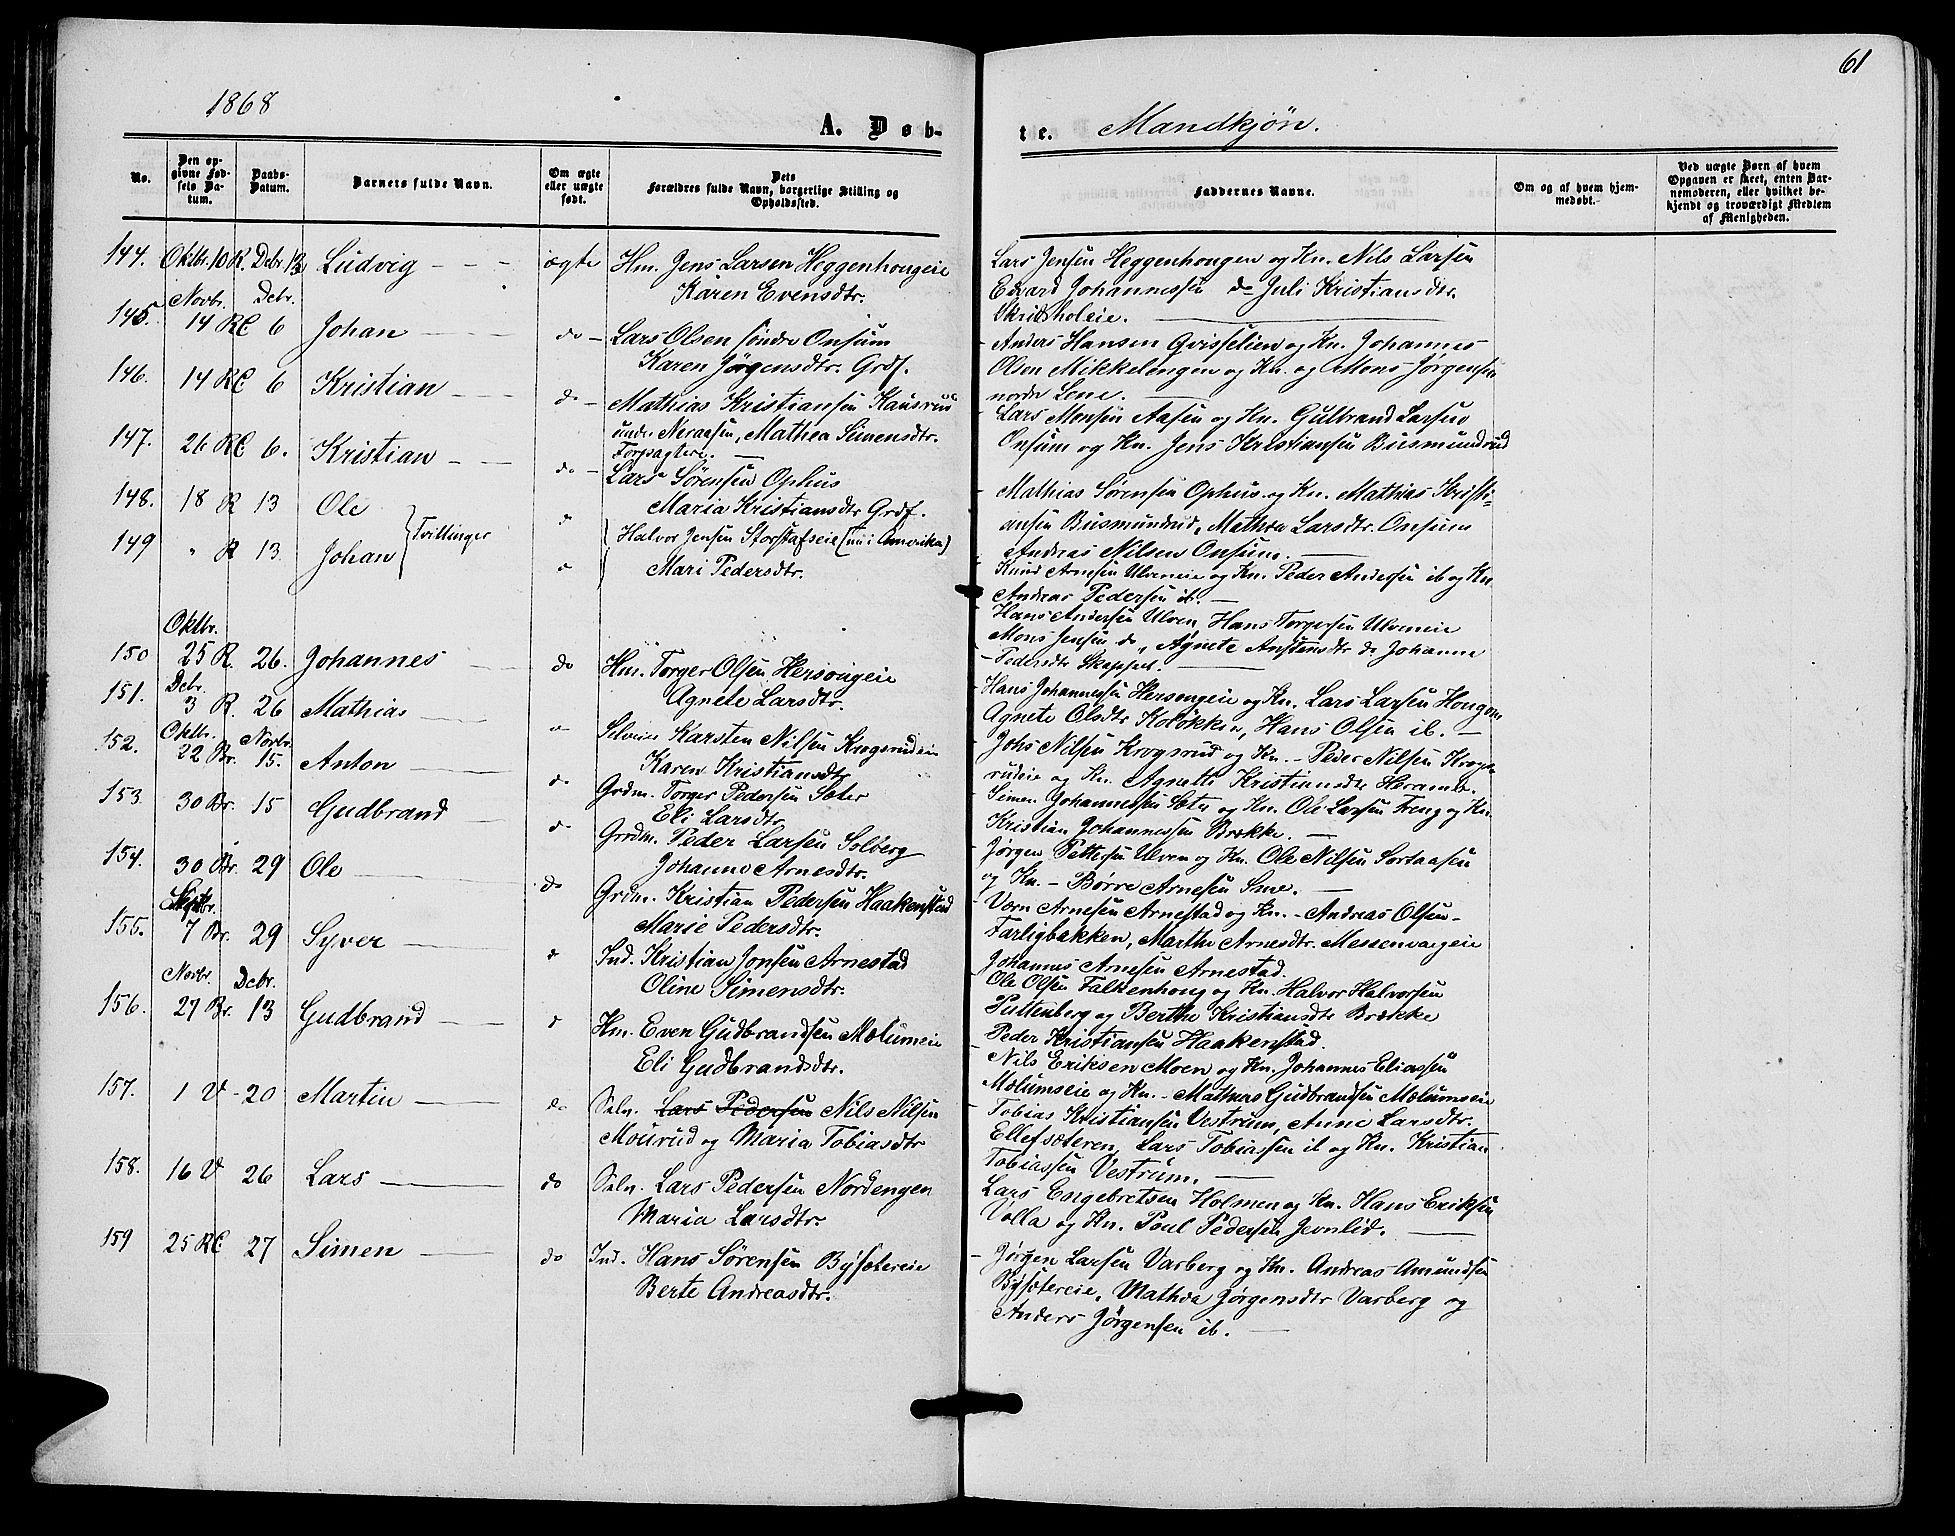 1868
61
A. Døb-
te. Mandkjön.
No.
Den op-
givne Fød-
sels Da-
tum.
Daabs-
Datum.
Barnets fulde Navn.
Om ægte
eller uægte
født.
Dets
Forældres fulde Navn, borgerlige Stilling og
Opholdssted.
Faddernes Navne.
Om og af hvem hjem-
medøbt.
Ved uægte Børn af hvem
Opgaven er skeet, enten Bar-
nemoderen, eller hvilket be-
kjendt og troværdigt Medlem
af Menigheden.
144. Oktbr. 10 R. Debr. 13 Ludvig - - - ægte Hm. Jens Larsen Heggenhougeie
Karen Evensdtr.
Lars Jensen Heggenhougen og Kn. Nils Larsen
Edvard Johannessen do Juli Kristiansdtr.
Skridsholeie.
Novbr. Debr.
145. 14 RC 6 Johan do - Lars Olsen söndre Onsum
Karen Jörgensdtr. Grdf.
- Anders Hansen Qvisselien og Kn. Johannes
Olsen Mikkelengen og Kn. og Mons Jörgensen
nordre Lone.
146. 14 RC 6 Kristian do - Mathias Kristiansen Hausrud
under Neraasen, Mathea Simensdtr.
Forpagtere.
Lars Monsen Aasen og Kn. Gulbrand Larsen
Onsum og Kn. Jens Kristiansen Busmundrud
147. 26 RC 6. Kristian do - Lars Sörensen Ophus
Maria Kristiansdtr Grdf.
- Mathias Sörensen Ophus og Kn. Mathias Kristi-
ansen Busmundrud, Mathea Larsdtr. Onsum
Andreas Nilsen Onsum.
148. 18 R 13 Ole Tvillinger Halvor Jensen Storstafseie (nu i Amerika)
149 " R 13 Johan Mari Pedersdtr.
Knud Arnesen Ulveneie og Kn. Peder Andersen ib og Kn.
Andreas Pedersen ib.
Hans Andersen Ulven, Hans Torgersen Ulveneie
Mons Jensen do, Agnete Anstensdtr do Johanne
- Pedersdtr Skappel.
Oktbr.
150 25 R. 26. Johannes do Hm. Torger Olsen Hersougeie
Agnete Larsdtr.
- Hans Johannessen Hersougeie og Kn. Lars Larsen Hougom
Agnete Olsdtr Kolökken, Hans Olsen ib.
Debr.
151. 3 R. 26 Mathias Selveier Karsten Nilsen Krogsrudeie
Karen Kristiansdtr
- Johs Nilsen Krogsrud og Kn. - Peder Nilsen Krogs-
rudeie og Kn. Agnethe Kristiansdtr Heramb.
Oktbr. Novbr.
152. 22 Br. 15. Anton do Grdm. Torger Pedersen Sæter
Eli Larsdtr
- Simen Johannessen Sætr og Kn. Ole Larsen Freng og Kn.
Kristian Johannessen Brække.
153. 30 Br. 15 Gudbrand do Grdm. Peder Larsen Solberg
Johanne Arnesdtr.
- Jörgen Pettersen Ulven og Kn. Ole Nilsen Sortaasen
og Kn. - Börre Arnesen Sme.
154. 30 Br. 29 Ole do Grdm. Kristian Pedersen Haakenstad
Marie Pedersdtr.
- Vorn Arnesen Arnestad og Kn. - Andreas Olsen
Farligbakken, Marthe Arnesdtr. Messenvaageie
Johannes Arnesen Arnestad.
155. 7 Br. 29 Syver Ind. Kristian Jonsen Arnestad
Oline Simensdtr.
Ole Olsen Falkenhoug og Kn. Halvor Halvorsen
Puttenberg og Berthe Kristiansdtr Brække
Peder Kristiansen Haakenstad.
Novbr. Debr.
156. 27 Br. 13 Gudbrand Hm. Even Gudbrandsen Mælumeie
Eli Gudbrandsdtr.
- Nils Eriksen Moen og Kn. Johannes Eliassen
Mælumseie og Kn. - Mathias Gudbrandsen Mælumseie
157. 1 V - 20 Martin do Seln. Lars Pedersen Nils Nilsen
Mourud og Maria Tobiasdtr
- Tobias Kristiansen Vestrum, Anne Larsdtr.
Ellefsæteren, Lars Tobiassen ib og Kn. Kristian
Tobiassen Vestrum.
158. 16 V 26 Lars do Seln. Lars Pedersen Nordengen
Maria Larsdtr.
Lars Engebretsen Holmen og Kn. Hans Eriksen
Volla og Kn. Poul Pedersen Jevnlid.
159 25 RC 27 Simen do Ind. Hans Sörensen Bysætereie
Berte Andreasdtr.
- Jörgen Larsen Varberg og Kn. Andreas Amundsen
Bysætereie, Mathea Jörgensdtr Varberg og
Anders Jörgensen ib.